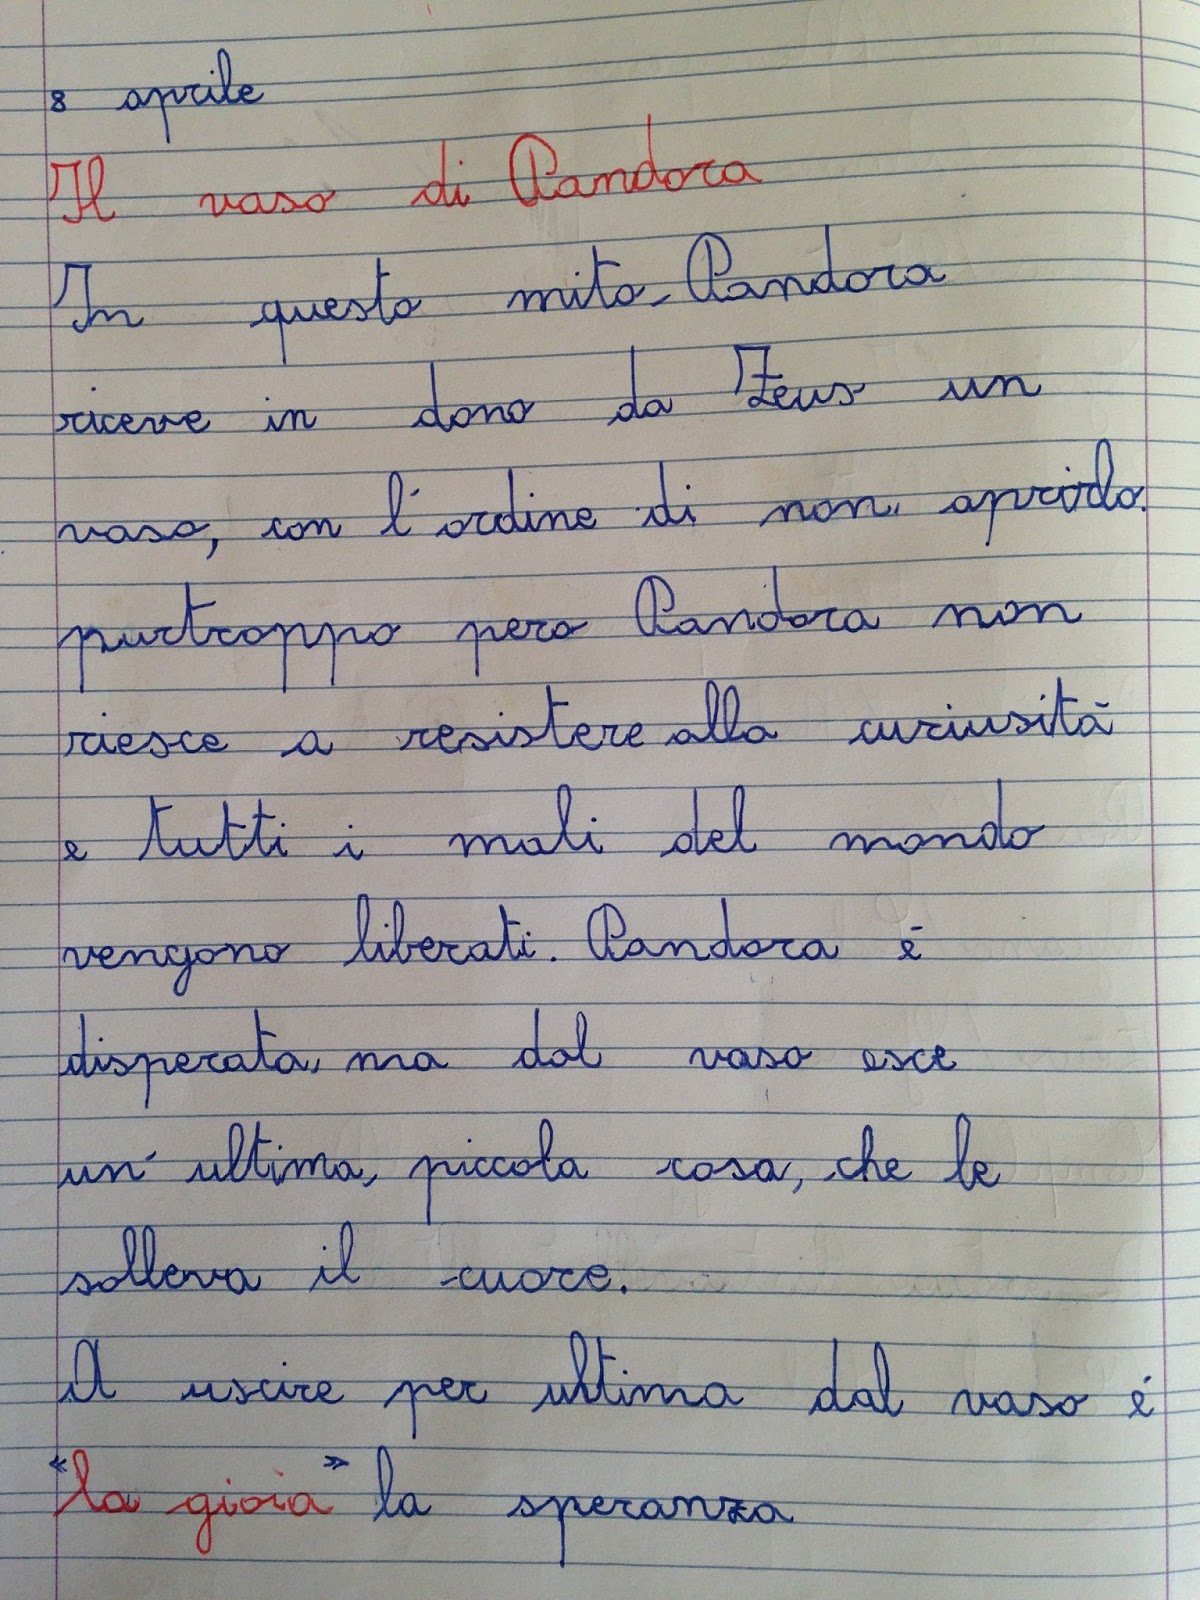 8 aprile
Il vaso di Pandora
In questo mito Pandora
riceve in dono da Zeus un
vaso, con l'ordine di non aprirlo.
purtroppo pero Pandora non
riesce a resistere alla curiusità
e tutti i mali del mondo
vengono liberati. Pandora é
disperata, ma dal vaso esce
un'ultima, piccola cosa, che le
solleva il cuore.
A uscire per ultima dal vaso é
"la gioia" la speranza